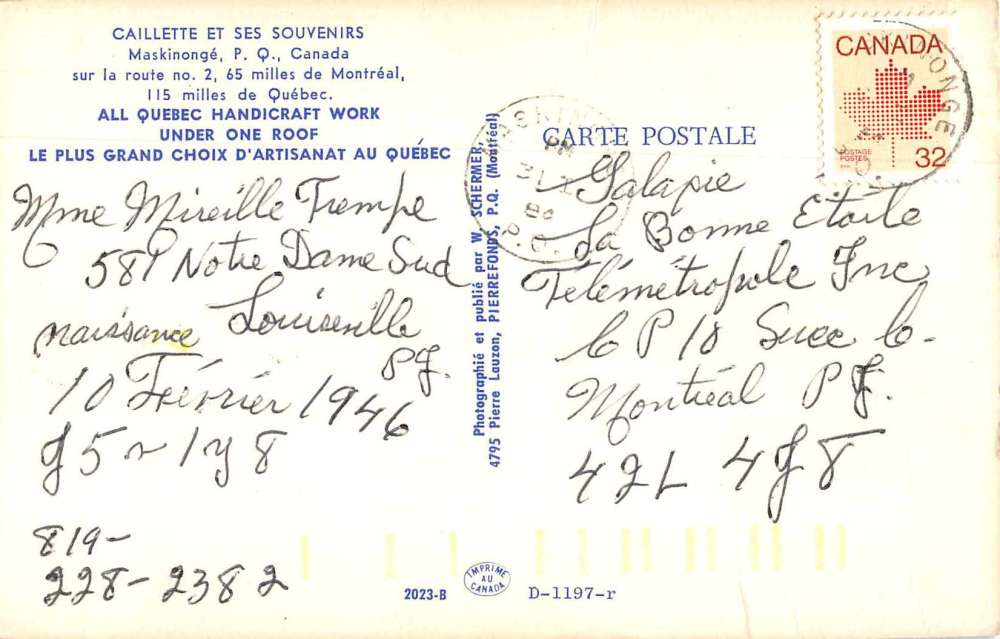 CAILLETTE ET SES SOUVENIRS
Maskinongé, P. Q., Canada
sur la route no. 2, 65 milles de Montréal,
115 milles de Québec.
ALL QUEBEC HANDICRAFT WORK
UNDER ONE ROOF
LE PLUS GRAND CHOIX D'ARTISANAT AU QUÉBEC
Mme Mireille Trempe
581 Notre Dame Sud
Louiseville
naissance
10 Février 1946
819-
228-2382
Photographié et publié par W. SCHERMER,
4795 Pierre Lauzon, PIERREFONDS, P.Q. (Montréal)
CARTE POSTALE
CANADA
POSTAGE
POSTES
32
PM
31 I
P.Q.
Galapie
La Bonne Etoile
Télémétropole Inc
C P 10 Succ C.
Montréal
2023-B
IMPRIMÉ
AU
CANADA
D-1197-r